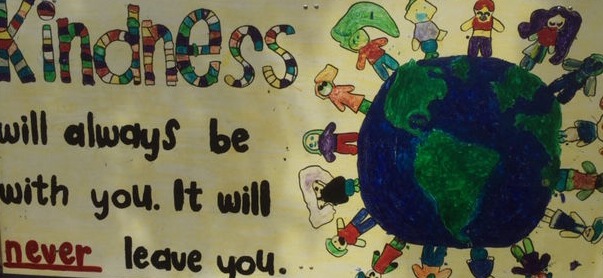 Kindness
will always be
with you. It will
never leave you.